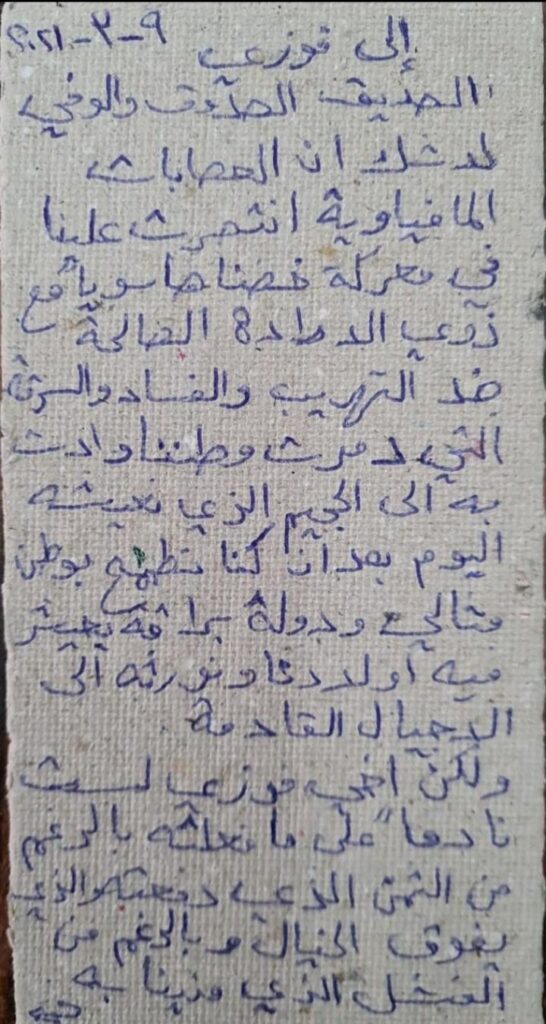 إلى فوزي ٩-٣-٢٠٢١
الصديق الصدوق والوفي
لا شك ان العصابات
المافياوية انتصرت علينا
في معركة خضناها سوياً مع
ذوي الارادة الصالحة
ضد التهريب والفساد والسرقة
التي دمرت وطننا وادت
به الى الجحيم الذي نعيشه
اليوم بعد ان كنا نطمح بوطن
مثالي ودولة براقة يعيش
فيه أولادنا ونورثه الى
الاجيال القادمة.
ولكن اخي فوزي لست
نادماً على ما فعلته بالرغم
من الثمن الذي دفعته والذي
يفوق الخيال وبالرغم من
الفشل الذي منينا به